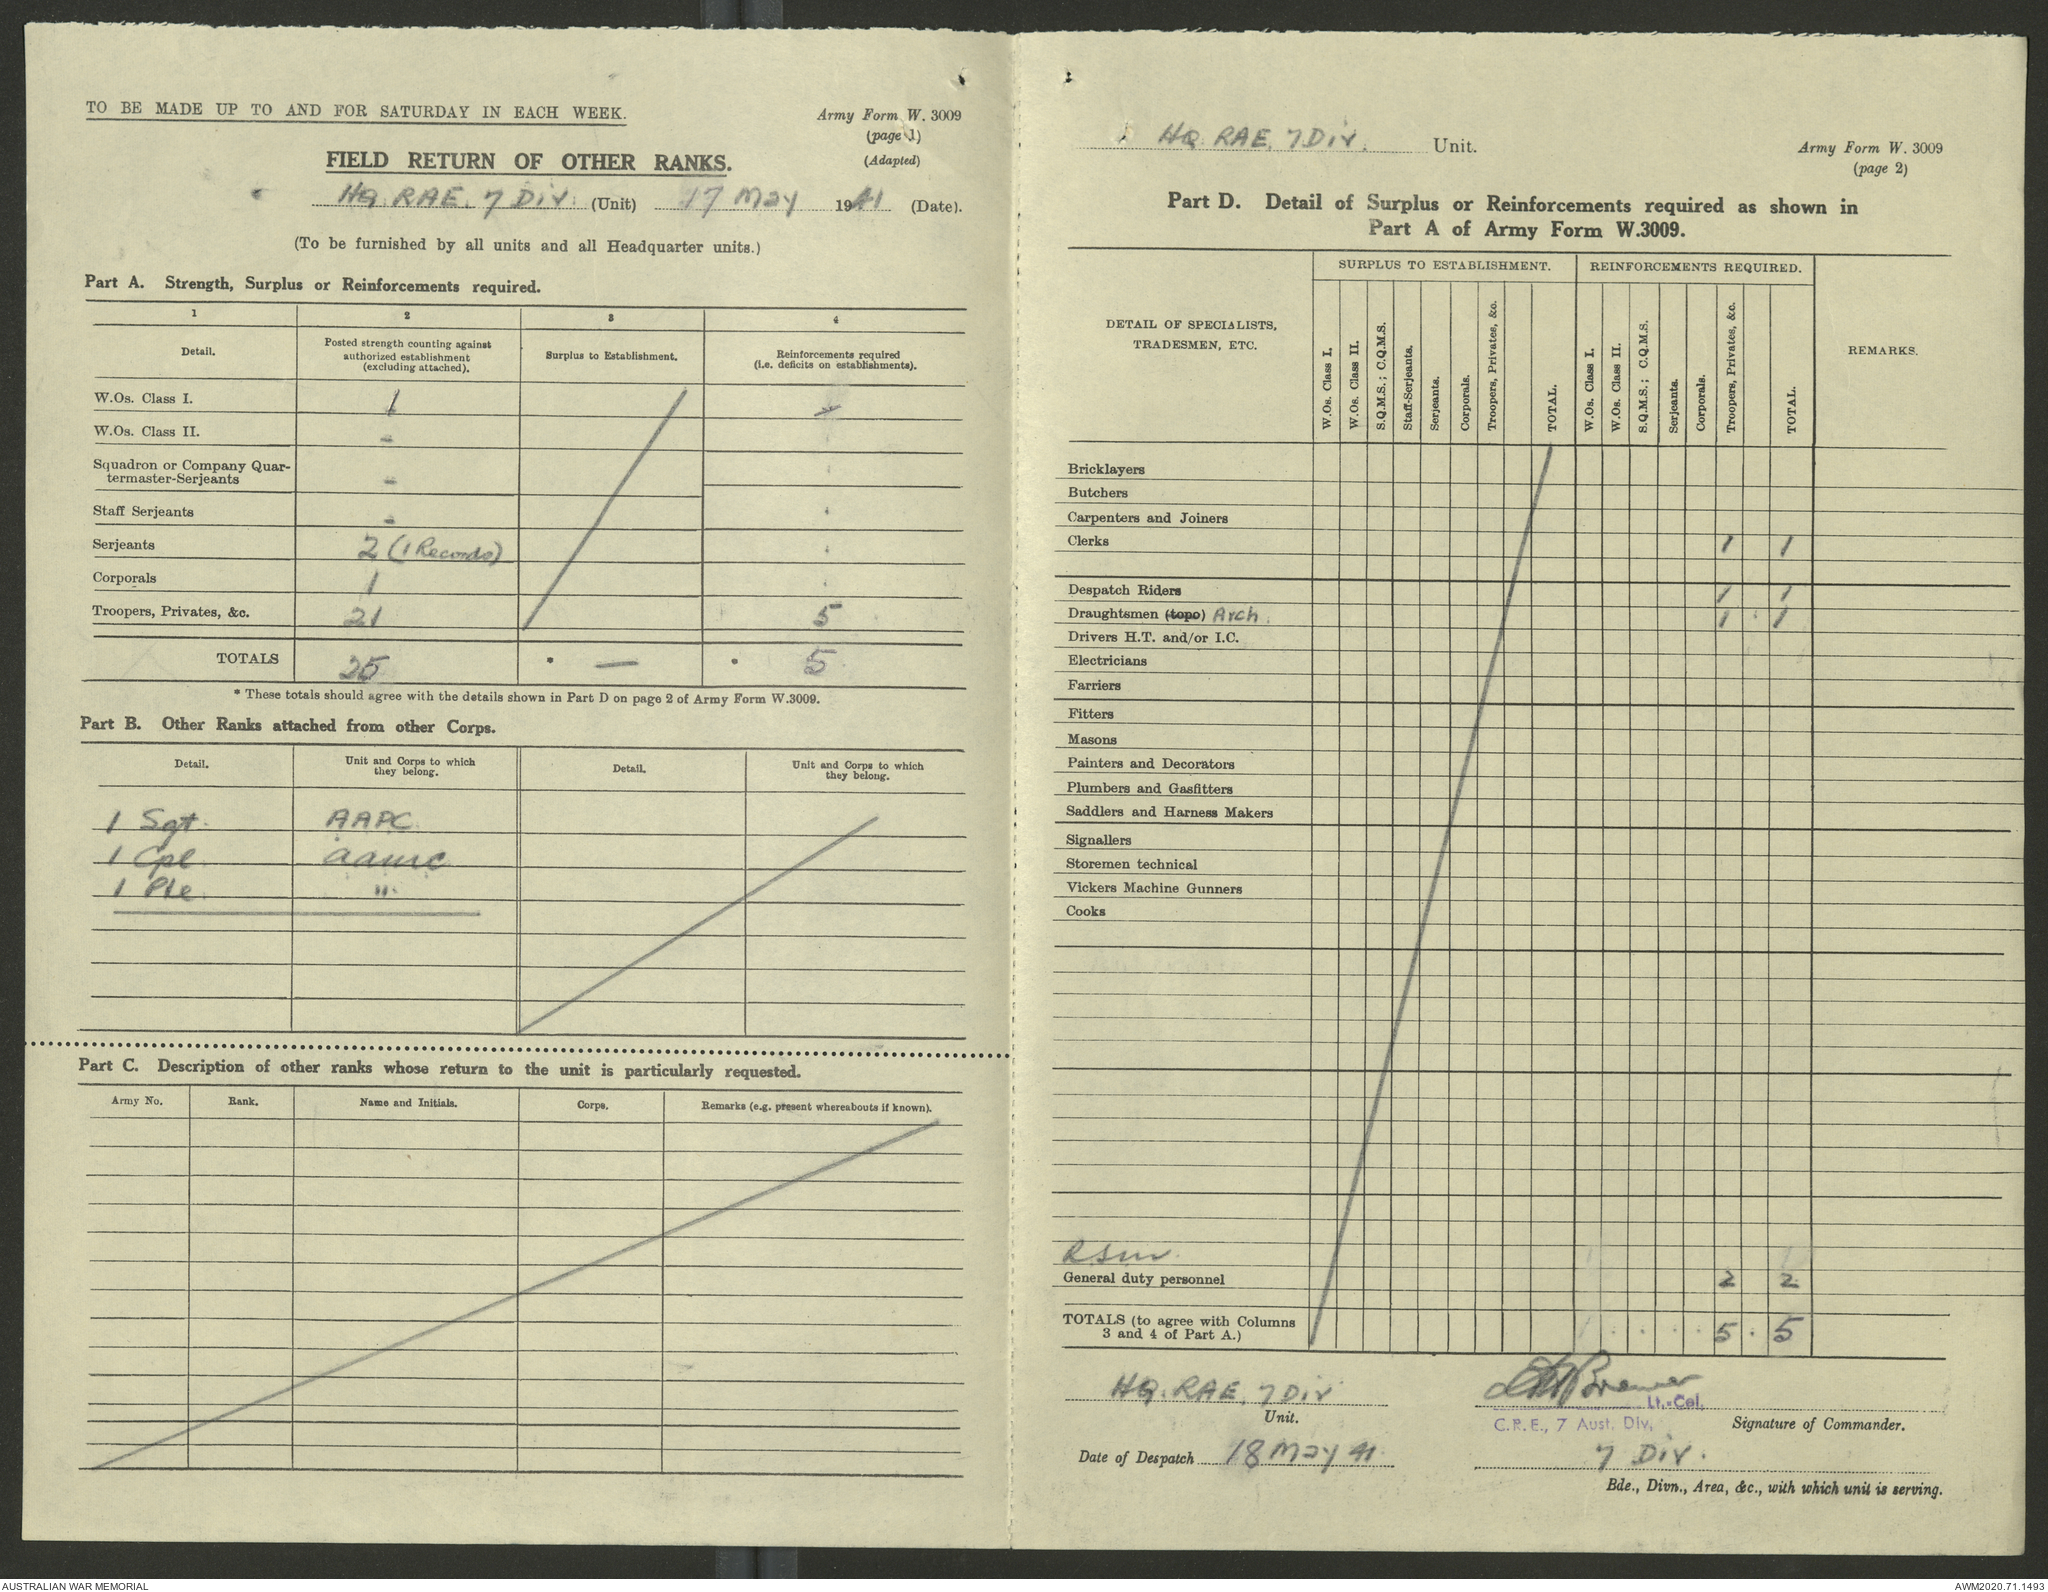 TO BE MADE UP TO AND FOR SATURDAY IN EACH WEEK.
Army Form W. 3009
(page 1)
(Adapted)
FIELD RETURN OF OTHER RANKS.
HQ. RAE. 7 Div. (Unit) 17 May 1941 (Date).
(To be furnished by all units and all Headquarter units.)
Part A. Strength, Surplus or Reinforcements required.
1 2 3 4
Detail. Posted strength counting against authorized establishment (excluding attached). Surplus to Establishment. Reinforcements required (i.e. deficits on establishments).
W.Os. Class I. 1
W.Os. Class II. -
Squadron or Company Quar-
termaster-Serjeants -
Staff Serjeants -
Serjeants 2 (1 Records)
Corporals 1
Troopers, Privates, &c. 21 5
TOTALS 25 * — * 5
* These totals should agree with the details shown in Part D on page 2 of Army Form W.3009.
Part B. Other Ranks attached from other Corps.
Detail. Unit and Corps to which they belong. Detail. Unit and Corps to which they belong.
1 Sgt. AAPC
1 Cpl aamc
1 Pte "
Part C. Description of other ranks whose return to the unit is particularly requested.
Army No. Rank. Name and Initials. Corps. Remarks (e.g. present whereabouts if known).
HQ. RAE. 7 Div. Unit.
Army Form W. 3009
(page 2)
Part D. Detail of Surplus or Reinforcements required as shown in
Part A of Army Form W.3009.
SURPLUS TO ESTABLISHMENT. REINFORCEMENTS REQUIRED.
DETAIL OF SPECIALISTS,
TRADESMEN, ETC.
W.Os. Class I. W.Os. Class II. S.Q.M.S.; C.Q.M.S. Staff-Serjeants. Serjeants. Corporals. Troopers, Privates, &c. TOTAL. W.Os. Class I. W.Os. Class II. S.Q.M.S.; C.Q.M.S. Serjeants. Corporals. Troopers, Privates, &c. TOTAL.
REMARKS.
Bricklayers
Butchers
Carpenters and Joiners
Clerks 1 1
Despatch Riders 1 1
Draughtsmen (topo) Arch. 1 1
Drivers H.T. and/or I.C.
Electricians
Farriers
Fitters
Masons
Painters and Decorators
Plumbers and Gasfitters
Saddlers and Harness Makers
Signallers
Storemen technical
Vickers Machine Gunners
Cooks
RSM
General duty personnel 2 2
TOTALS (to agree with Columns
3 and 4 of Part A.) 5 5
HQ. RAE. 7 Div
Unit.
Lt.-Col.
C.R.E., 7 Aust. Div. Signature of Commander.
Date of Despatch 18 May 41
7 Div.
Bde., Divn., Area, &c., with which unit is serving.
AUSTRALIAN WAR MEMORIAL
AWM2020.71.1493